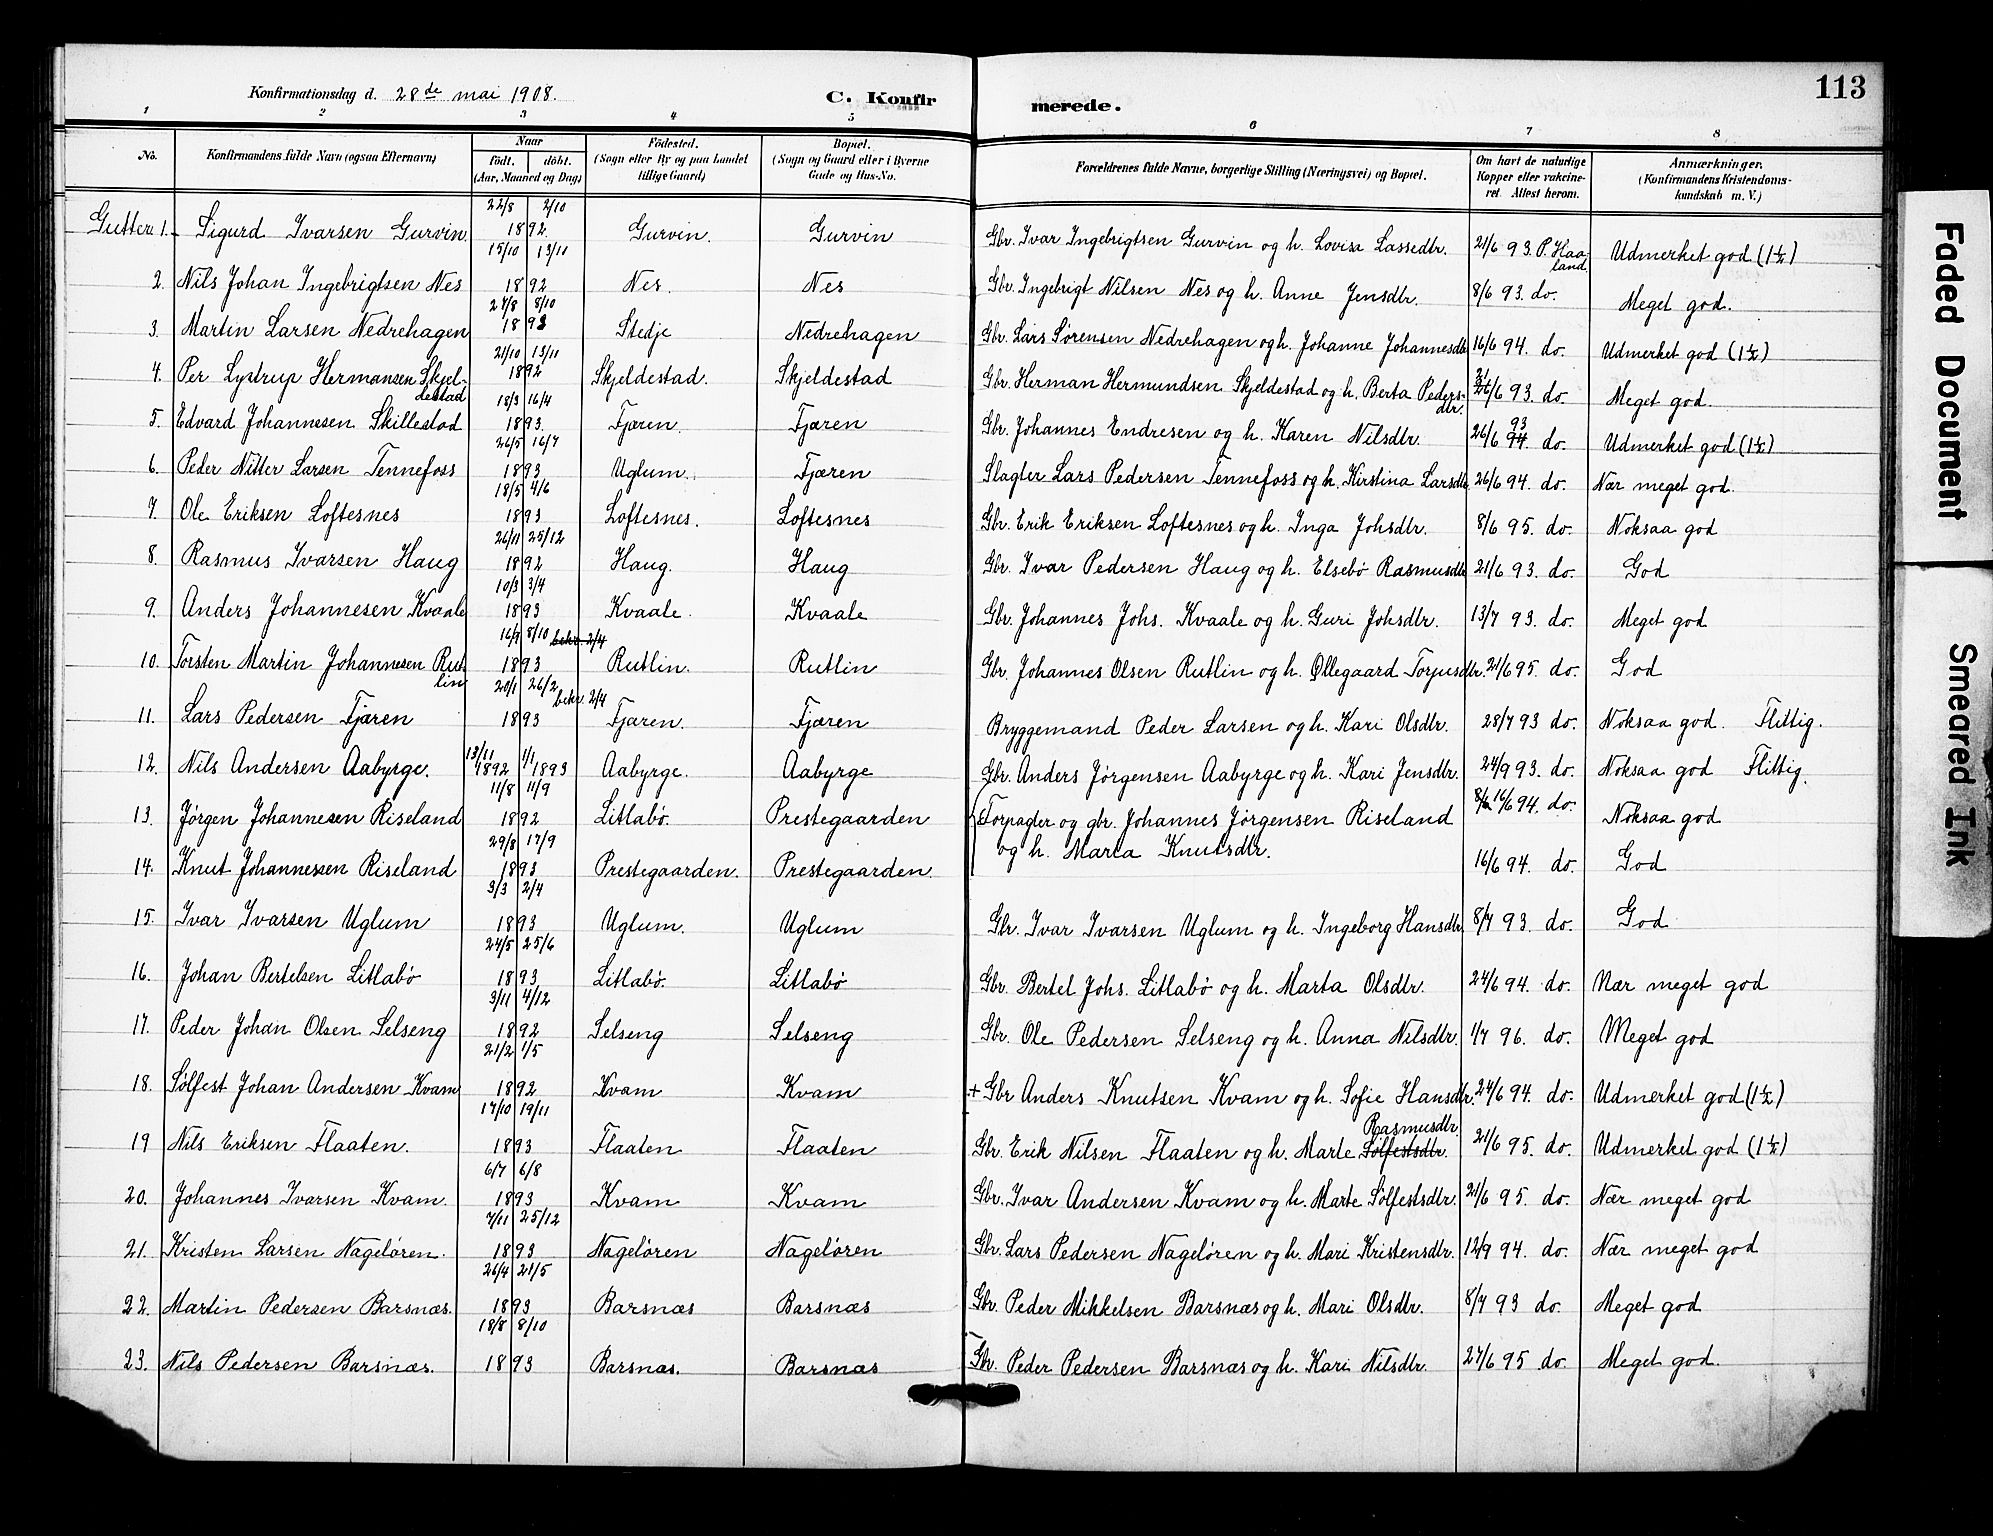 113
Konfirmationsdag d. 28de mai 1908.
C. Konfir merede.
1 2 3 4 5 6 7 8
No. Konfirmandens fulde Navn (ogsaa Efternavn) Naar födt. döbt. (Aar, Maaned og Dag) Födested. (Sogn eller By og paa Landet tillige Gaard) Bopæl. (Sogn og Gaard eller i Byerne Gade og Hus-No. Forældrenes fulde Navne, borgerlige Stilling (Næringsvei) og Bopæl. Om havt de naturlige Kopper eller vakcineret. Attest herom. Anmærkninger. (Konfirmandens Kristendomskundskab m. V.)
Gutter 1. Sigurd Ivarsen Gurvin. 22/8 2/10 1892. Gurvin. Gurvin Gbr. Ivar Ingebrigtsen Gurvin og h. Lovisa Lassedtr. 21/6 93. P. Haaland. Udmerket god (1½)
2. Nils Johan Ingebrigtsen Nes 15/10 13/11 1892 Nes. Nes Gbr. Ingebrigt Nilsen Nes og h. Anne Jensdtr. 8/6 93. do. Meget god.
3. Martin Larsen Nedrehagen 27/8 8/10 1892 Stedje Nedrehagen Gbr. Lars Sørensen Nedrehagen og h. Johanne Johannesdtr 16/6 94. do. Udmerket god (1½)
4. Per Lystrup Hermansen Skjeldestad 21/10 13/11 1892 Skjeldestad. Skjeldestad Gbr. Herman Hermundsen Skjeldestad og h. Berta Pedersdtr. 21/6 93. do. Meget god.
5. Edvard Johannesen Skillestad 18/3 16/4 1893. Fjæren. Fjæren Gbr. Johannes Endresen og h. Karen Nilsdtr. 26/6 93 94 do. Udmerket god (1½)
6. Peder Nitter Larsen Tennefoss 26/5 16/7 1893 Uglum. Fjæren Slagter Lars Pedersen Tennefoss og h. Kirstina Larsdtr. 26/6 94. do. Nær meget god.
7. Ole Eriksen Loftesnes 18/5 4/6 1893 Loftesnes. Loftesnes Gbr. Erik Eriksen Loftesnes og h. Inga Johsdtr. 8/6 95. do. Noksaa god
8. Rasmus Ivarsen Haug 26/11 25/12 1892 Haug. Haug Gbr. Ivar Pedersen Haug og h. Elsebø Rasmusdtr 21/6 93. do. God
9. Anders Johannesen Kvaale 10/3 3/4 1893 Kvaale. Kvaale Gbr. Johannes Johs. Kvaale og h. Guri Johsdtr. 13/7 93. do. Meget god
10. Torsten Martin Johannesen Rutlin 16/9 8/10 bekr. 2/4 1893 Rutlin. Rutlin Gbr. Johannes Olsen Rutlin og h. Øllegaard Torjusdtr. 21/6 95. do. God
11. Lars Pedersen Fjæren 20/1 26/2 bekr. 2/4 1893 Fjæren. Fjæren Bryggemand Peder Larsen og h. Kari Olsdtr. 28/7 93 do. Noksaa god. Flittig.
12. Nils Andersen Aabyrge. 13/11 1892 1/1 1893 Aabyrge. Aabyrge Gbr. Anders Jørgensen Aabyrge og h. Kari Jensdtr. 24/9 93. do. Noksaa god Flittig.
13. Jørgen Johannesen Riseland 11/8 11/9 1892 Litlabø. Prestegaarden Forpagter og gbr. Johannes Jørgensen Riseland 16/6 94. do. Noksaa god
og h. Marta Knutsdtr.
14. Knut Johannessen Riseland 29/8 17/9 1893 Prestegaarden. Prestegaarden. 16/6 94. do. God
15. Ivar Ivarsen Uglum 3/3 2/4 1893 Uglum. Uglum Gbr. Ivar Ivarsen Uglum og h. Ingeborg Hansdtr. 8/7 93. do. God
16. Johan Bertelsen Litlabø 24/5 25/6 1893 Litlabø. Litlabø Gbr. Bertel Johs. Litlabø og h. Marta Olsdtr. 24/6 94. do. Nær meget god
17. Peder Johan Olsen Selseng 3/11 4/12 1892 Selseng Selseng Gbr. Ole Pedersen Selseng og h. Anna Nilsdtr. 1/7 96. do. Meget god
18. Sølfest Johan Andersen Kvam 21/2 1/5 1892 Kvam Kvam + Gbr Anders Knutsen Kvam og h. Sofie Hansdtr. 24/6 94. do. Udmerket god (1½)
19 Nils Eriksen Flaaten. 17/10 19/11 1893 Flaaten Flaaten Gbr. Erik Nilsen Flaaten og h. Marte Sølfestsdtr. Rasmusdtr. 21/6 95. do. Udmerket god (1½)
20. Johannes Ivarsen Kvam. 6/7 6/8 1893 Kvam Kvam Gbr. Ivar Andersen Kvam og h. Marte Sølfestsdtr. 21/6 95. do. Nær meget god
21. Kristen Larsen Nageløren. 7/11 25/12 1893 Nageløren Nageløren Gbr. Lars Pedersen Nageløren og h. Mari Kristensdtr. 12/9 94. do. Nær meget god
22. Martin Pedersen Barsnæs. 26/4 21/5 1893 Barsnæs Barsnæs Gbr. Peder Mikkelsen Barsnæs og h. Mari Olsdtr. 8/7 93 do. Meget god
23. Nils Pedersen Barsnæs. 18/8 8/10 1893 Barsnæs. Barsnæs Gbr. Peder Pedersen Barsnæs og h. Kari Nilsdtr. 27/6 95 do. Meget god.
Faded Document
Smeared Ink